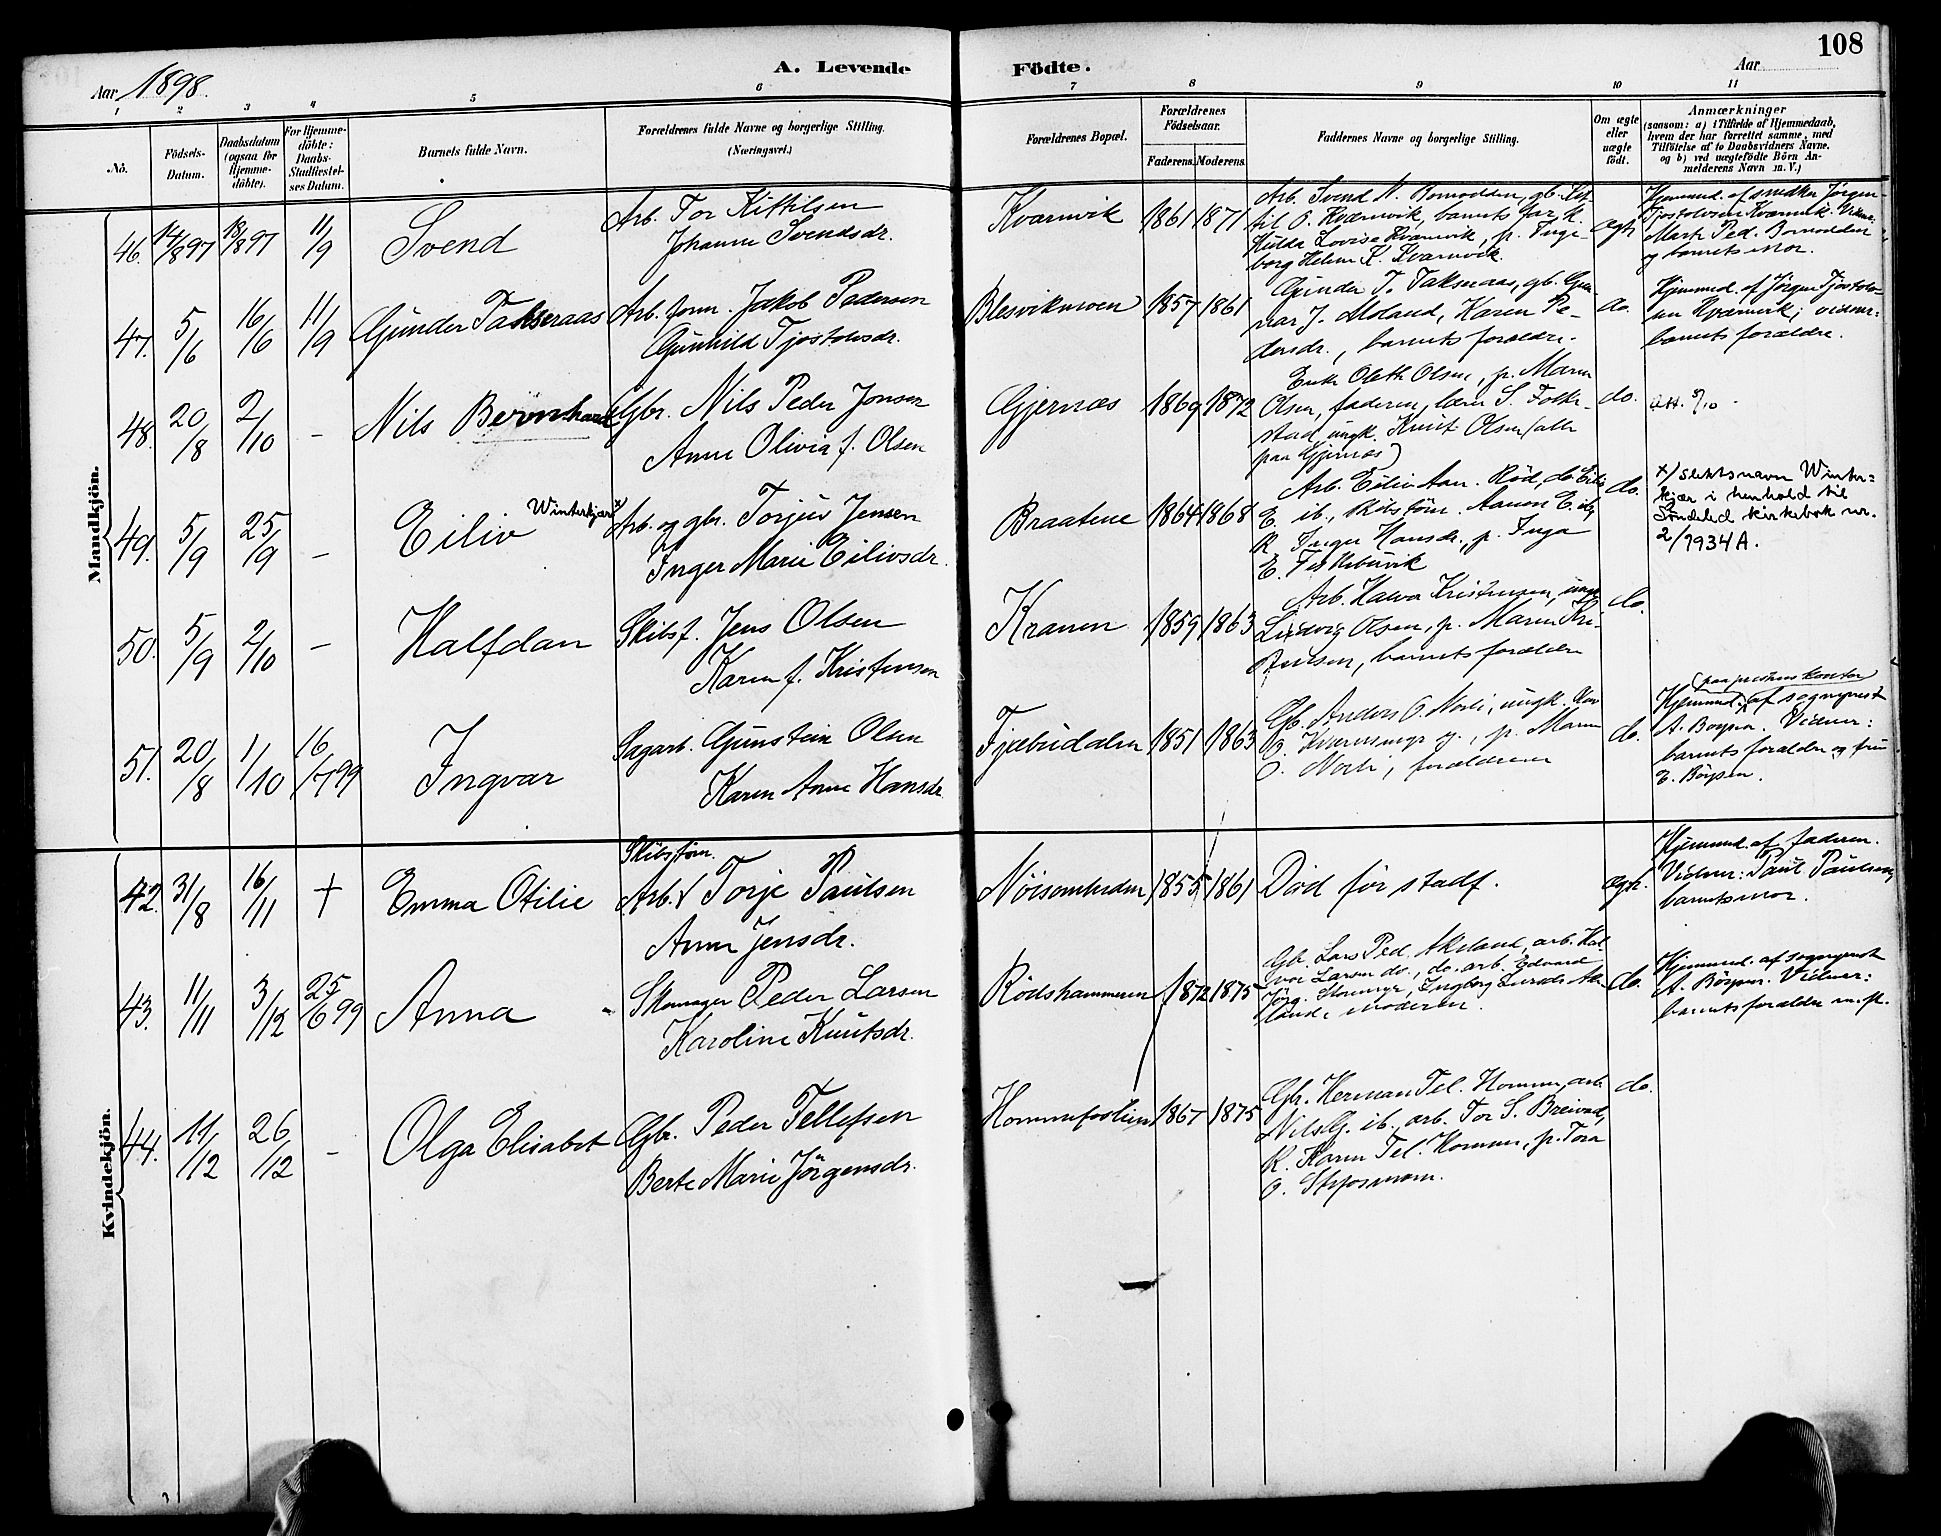 108
A. Levende Födte.
Aar 1898.
Aar
1 2 3 4 5 6 7 8 9 10 11
No.
Födsels-
Datum.
Daabsdatum
(ogsaa for
Hjemme-
döbte).
For Hjemme-
döbte:
Daabs-
Stadfæstel-
ses Datum.
Barnets fulde Navn.
Forældrenes fulde Navne og borgerlige Stilling.
(Næringsvei.)
Forældrenes Bopæl.
Forældrenes
Födselsaar.
Faderens. Moderens.
Faddernes Navne og borgerlige Stilling.
Om ægte
eller
uægte
födt.
Anmærkninger
(saasom: a) i Tilfælde af Hjemmedaab,
hvem der har forrettet samme, med
Tilföielse af to Daabsvidners Navne,
og b) ved uægtefödte Börn An-
melderens Navn m. V.)
Mandkjön.
46. 14/8 97 18/8 97 11/9 Svend
Arb. Tor Kittilsen
Johanne Svendsdr.
Kvarnvik 1861 1871
Arb. Svend N. Bomodden, gb.
til O. Kvarnvik, barnets far, k.
Hulda Lovise Kvarnvik, p. Inge-
borg Helene K. Kvarnvik.
ægte
Hjemmed. af snedker Jörgen
Tjostolvsen Kvarnvik. Vidner:
Mart. Ped. Bomodden
og barnets mor.
47. 5/6 16/6 11/9 Gunder Takseraas
Arb. forn. Jakob Pedersen
Gunhild Tjostolvsdr.
Blesvikmoen 1857 1861
Gunder T. Takseraas, gb. Gun-
nar J. Moland, Karen Pe-
dersdr., barnets forældre.
do.
Hjemmed. af Jörgen Tjostolv-
sen Kvarnvik; vidner:
barnets forældre.
48. 20/8 2/10 - Nils Bernhard
Gbr. Nils Peder Jonsen
Anne Olivia f. Olsen
Gjernæs 1869 1872
Enke Oleth Olsen, p. Maren
Olsen, faderen, lærer S. Folke-
stad, ungk. Knut Olsen (alle
paa Gjernæs)
do.
att. 5/10
49. 5/9 25/9 - Eiliv Winterkjær x)
Arb. og gbr. Torjus Jensen
Inger Marie Eilivsdr.
Braatene 1864 1868
Arb. Eiliv Aan. Röd, do. Eiliv
E. ib., skibstöm. Aanon E. ib.
K. Inger Hansdr., p. Inga
E. Fiskebuvik
do.
x) Slektsnavn Winter=
kjær i henhold til
Söndeled kirkebok nr.
2/1934 A.
50. 5/9 2/10 - Halfdan
Skibsf. Jens Olsen
Karen f. Kristensen
Kranen 1859 1863
Arb. Halvor Kristensen, ungk.
Ludvig Olsen, p. Maren Kri-
stensen, barnets forældre
do.
51. 20/8 1/10 16/7 99 Ingvar
Sagarb. Gunstein Olsen
Karen Anne Hansdr.
Fjeldbudalen 1851 1863
Gb. Anders O. Norli, ungk.
p. Maren
O. Norli, forældrene
do.
(paa prestens kontor)
Hjemmed. af sogneprest
A. Börsen. Vidner:
barnets forældre og fru
E. Börsen.
Kvindekjön.
42. 31/8 16/11 † Emma Otilie
Skibstöm.
Arb. Torje Paulsen
Anne Jensdr.
Nöisomheden 1855 1861
Död för stadf.
ægte.
Hjemmed. af faderen.
Vidner: Paul Paulsen,
barnets mor.
43. 11/11 3/12 25/6 99 Anna
Skomager Peder Larsen
Karoline Knutsdr.
Rödshammeren 1872 1875
Gb. Lars Ped. Akeland, arb. Hal-
vor Larsen do., do. arb. Edvard
Jörg. Ingborg Larsdr. Ak-
land, moderen.
do.
Hjemmed. af sogneprest
A. Börsen. Vidner:
barnets forældre m. fl.
44. 11/12 26/12 - Olga Elisabet
Gbr. Peder Tellefsen
Berte Marie Jörgensdr.
Hommefostien 1867 1875
Gbr. Herman Tel. Homme, arb.
Nils G. ib., arb. Tor S. Breivad,
K. Karen Tel. Homme, p. Tora
O.
do.